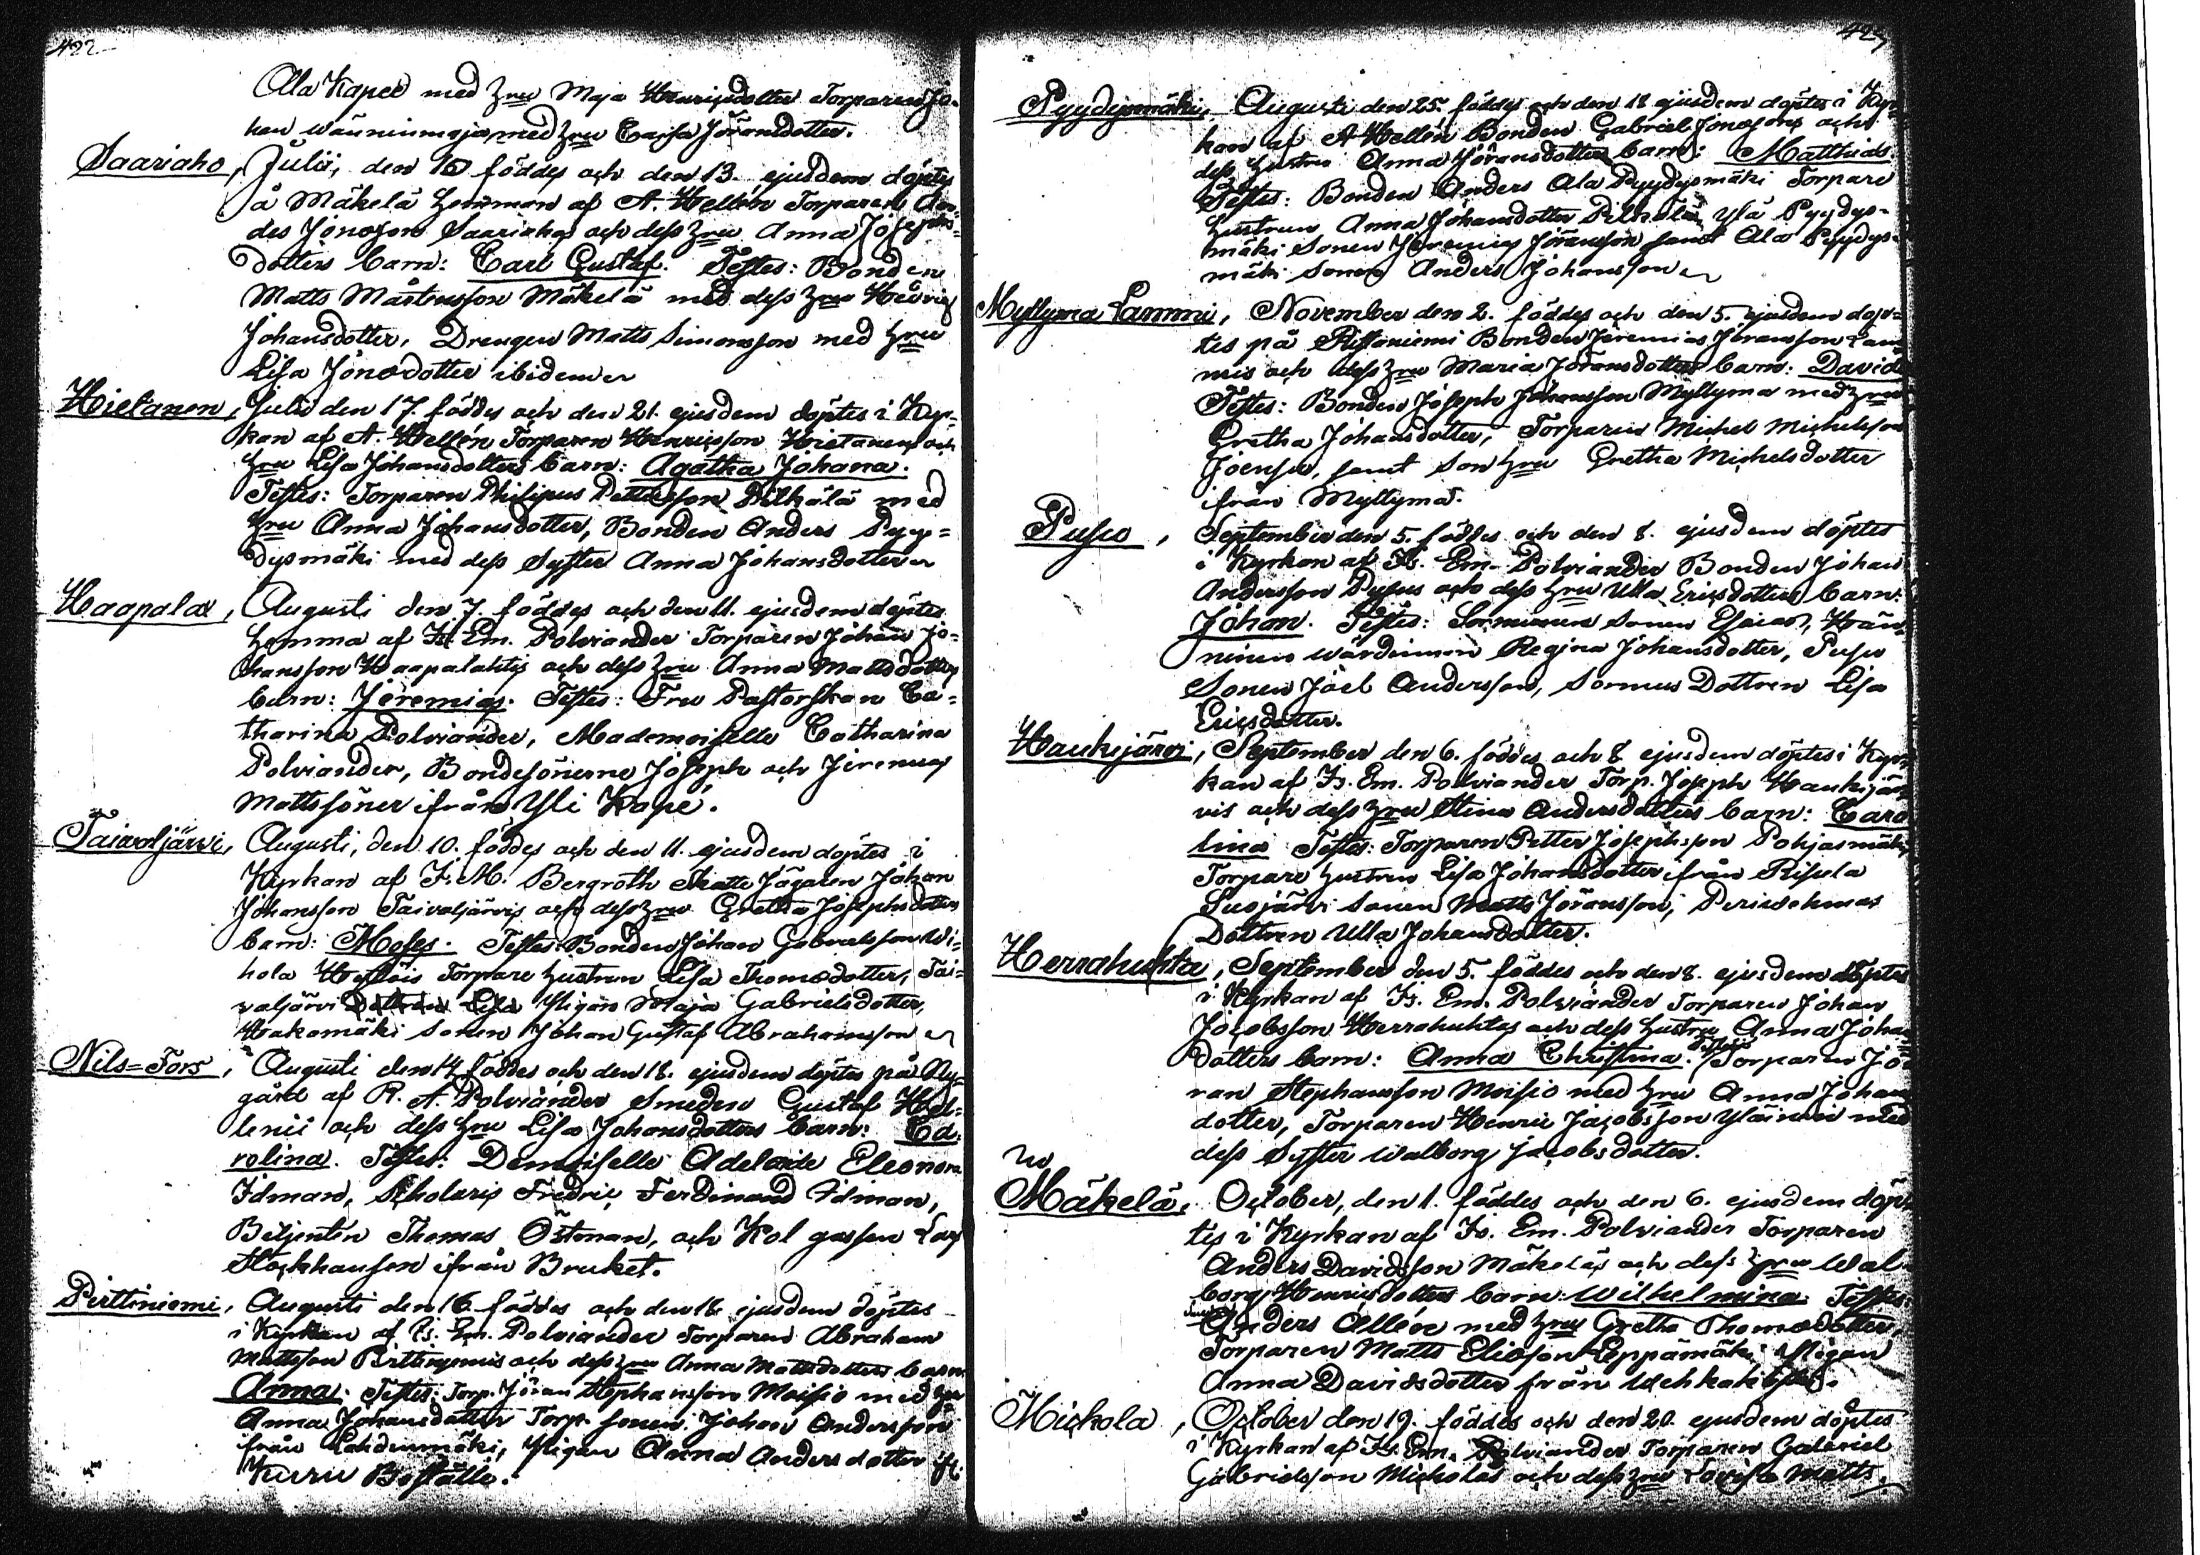 422
Ala Kapee med hru Maja Henricsdotter Torparen Jo-
han wänninmaja, med hru Caisa Jöransdotter.
Saariaho, Julii, den 10 föddes och den 13. ejusdem döptes
å Mäkelä hemman af A. Hellén Torparen An-
des Jonæson Saariahos och dess hru Anna Josephs-
dotters barn: Carl Gustaf. Testes: Bonden
Matts Mårtensson Mäkelä med dess hru Hedvig
Johansdotter, Drengen Matts Simonsson med hru
Lisa Jönsdotter ibidem
Hietanen, Julii den 17. föddes och den 21. ejusdem döptes i Kyr-
kan af A. Hellén Torparen Henricsson Hietanens och
hru Lisa Johansdotters barn: Agatha Johana.
Testes: Torparen Philipus Pettersson Pitkälä med
hru Anna Johansdotter, Bonden Anders Pyy-
dysmäki med dess Syster Anna Johansdotter
Haapala, Augusti den 7. föddes och den 11. ejusdem döptes
hemma af Fr. Em. Polviander Torparen Johan Jo-
hansson Haapalahtis och dess hru Anna Mattsdotters
barn: Jeremias. Testes: Fru Pastorskan Ca-
tharina Polviander, Mademoiselle Catharina
Polviander, Bondesönerne Joseph och Jeremias
Mattssöner ifrån Yli Kapé.
Taivaljärvi, Augusti, den 10. föddes och den 11. ejusdem döptes i
Kyrkan af F. M. Bergroth Skatte Jägaren Johan
Johansson Taivaljärvis och dess hru Gretha Josephsdotters
barn: Moses. Testes: Bonden Johan Gabrielsson Wi-
hola Torpare hustrun Lisa Thomædotter, Tai-
valjärvi Pigan Maja Gabrielsdotter,
Hakomäki sonen Johan Gustaf Abrahamsson
Nils=Fors, Augusti den 14 föddes och den 18. ejusdem döptes på Ny-
gård af R. A. Polviander Smeden Gustaf Hel-
lenii och dess hru Lisa Johansdotters barn: Ca-
rolina. Testes: Demoiselle Adelaide Eleonora
Idman, Scholaris Fredric Ferdinand Idman,
Betjenten Thomas Östman, och Kol gassen Lars
Stockhausen ifrån Bruket.
Pirttiniemi, Augusti den 16. föddes och den 18. ejusdem döptes
i Kyrkan af Fr. Em. Polviander Torparen Abraham
Mattsson Pirttiniemis och dess hru Anna Mattsdotters barn
Anna. Testes: Torp. Jöran Stephansson Moisio med hru
Anna Johansdotter Torp. sonen Johan Andersson
ifrån Lahdenmäki, Pigan Anna Andersdotter ifr.
Kuru Boställe.
423
Pyydysmäki, Augusti den 25. föddes och den 18 ejusdem döptes i Kyr-
kan af A Hellén Bonden Gabriel Jonæsons och
dess hustru Anna Jöransdotters barn: Matthias.
Testes: Bonden Anders Ala Pyydysmäki Torpare
hustrun Anna Johansdotter Pitkälä, Ylä Pyydys-
mäki Sonen Jeremias Jöransson samt Ala Pyydys-
mäki Sonen Anders Johansson
Myllymaa Lammi, November den 2. föddes och den 5. ejusdem döp-
tes på Ristaniemi Bonden Jeremias Jöransson Lam-
mis och dess hru Maria Jöransdotters barn: David
Testes: Bonden Joseph Johansson Myllymaa med hru
Gretha Johansdotter, Torparen Michel Michelsson
Joensuu, samt Son hru Gretha Michelsdotter
ifrån Myllymaa.
Pusu, September den 5. föddes och den 8. ejusdem döptes
i Kyrkan af Fr. Em. Polviander Bonden Johan
Andersson Pusus och dess hru Ulla Ericsdotters barn:
Johan. Testes: Sormuinen Sonen Esaias, Hän-
ninen wärdinnen Regina Johansdotter, Pusu
Sonen Joel Andersson, Sormus Dottren Lisa
Ericsdotter.
Haukijärvi, September den 6. föddes och 8 ejusdem döptes i Kyr-
kan af Fr. Em. Polviander Torp. Joseph Haukijär-
vis och dess hru Stina Andersdotters barn: Caro-
lina Testes: Torparen Petter Josephsson Pohjasmäki
Torpare hustrun Lisa Johansdotter ifrån Risula
Susjärvi Sonen Matts Jöransson,
Dottren Ulla Johansdotter.
Herrahuhta, September den 5. föddes och den 8. ejusdem döptes
i Kyrkan af Fr. Em. Polviander Torparen Johan
Jacobsson Herrahuhtas och dess hustru Anna Johans-
dotters barn: Anna Christina. Testes: Torparen Jö-
ran Stephansson Moisio med hru Anna Johans
dotter, Torparen Henric Jacobsson Yläinen med
dess Syster Walborg Jacobsdotter.
Mäkelä, October, den 1. föddes och den 6. ejusdem döp-
tes i Kyrkan af Fr. Em. Polviander Torparen
Anders Davidsson Mäkeläs och dess hru Wal-
borg Henricsdotters barn: Wilhelmina. Testes:
Anders Allén med hru Gretha Thomædotter,
Torparen Matts Eliæson Leppämäki Pigan
Anna Davidsdotter från
Mickola, October den 19. föddes och den 20. ejusdem döptes
i Kyrkan af Fr. Em. Polviander Torparen Gabriel
Gabrielsson Mickolas och dess hru Lovisa Matts-